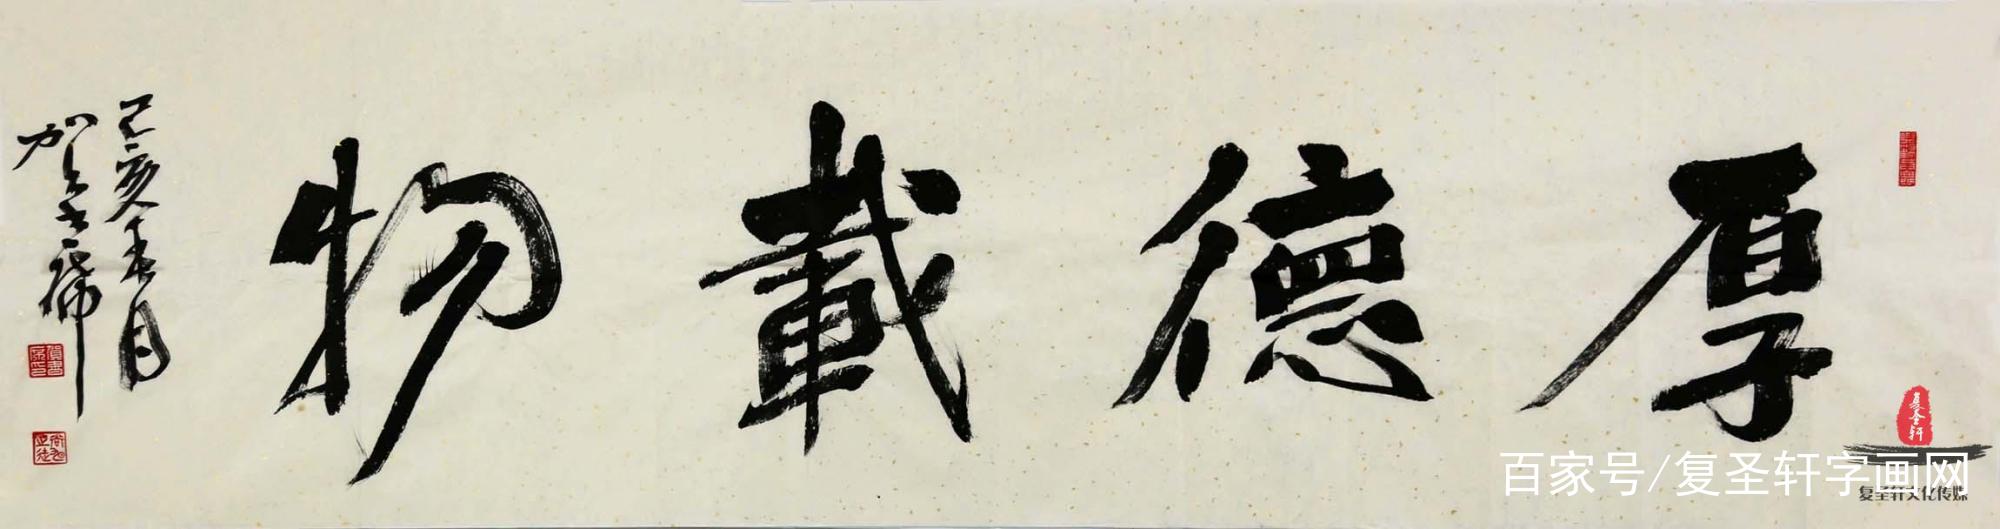 厚德載物
己亥年春月
賀書帝
百家号/复圣轩字画网
复圣轩
复圣轩文化传媒